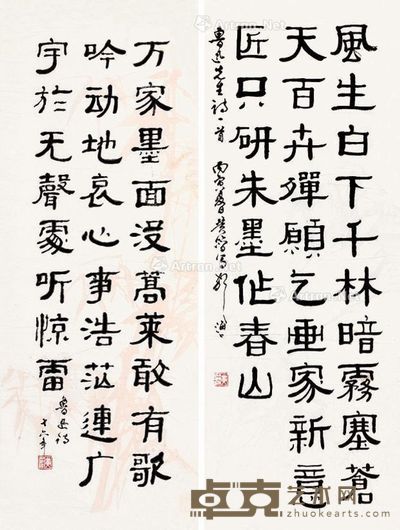 風生白下千林暗霧塞蒼
天百卉殫願乞画家新意
匠只研朱墨作春山
魯迅先生詩一首
丙寅夏日
万家墨面没蒿莱敢有歌
吟动地哀心事浩茫連广
宇於无聲處听惊雷
魯迅詩
卓克艺术网
www.zhuokearts.com